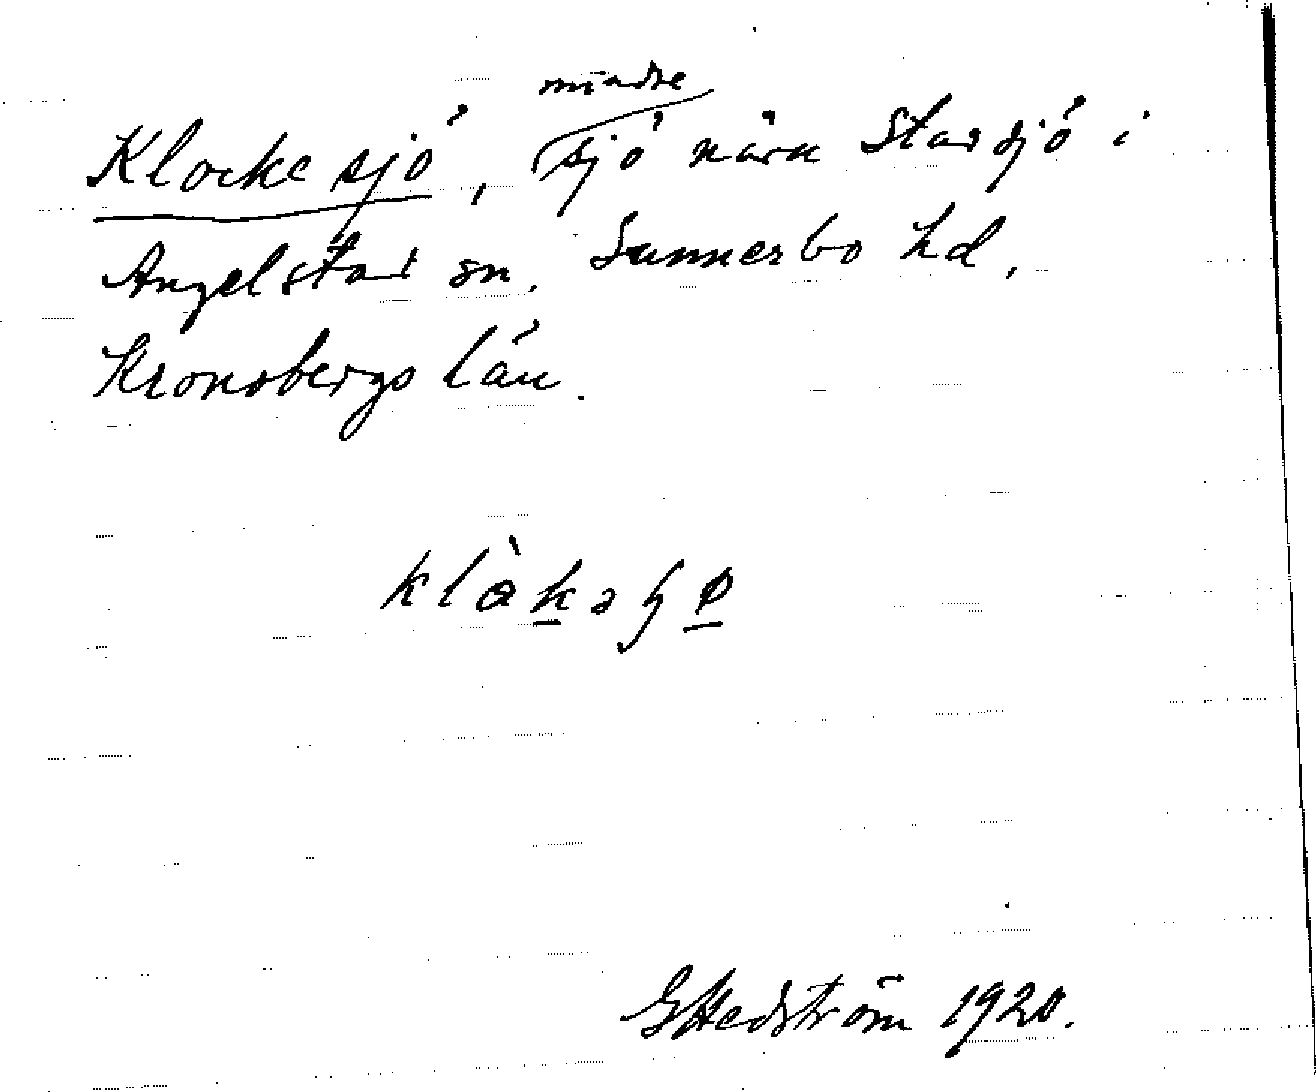 Klockesjö, mindre sjö nära Starsjö i
Angelstad sn. Sunnerbo hd,
Kronobergs län.
klòkəɧø
G Hedström 1920.